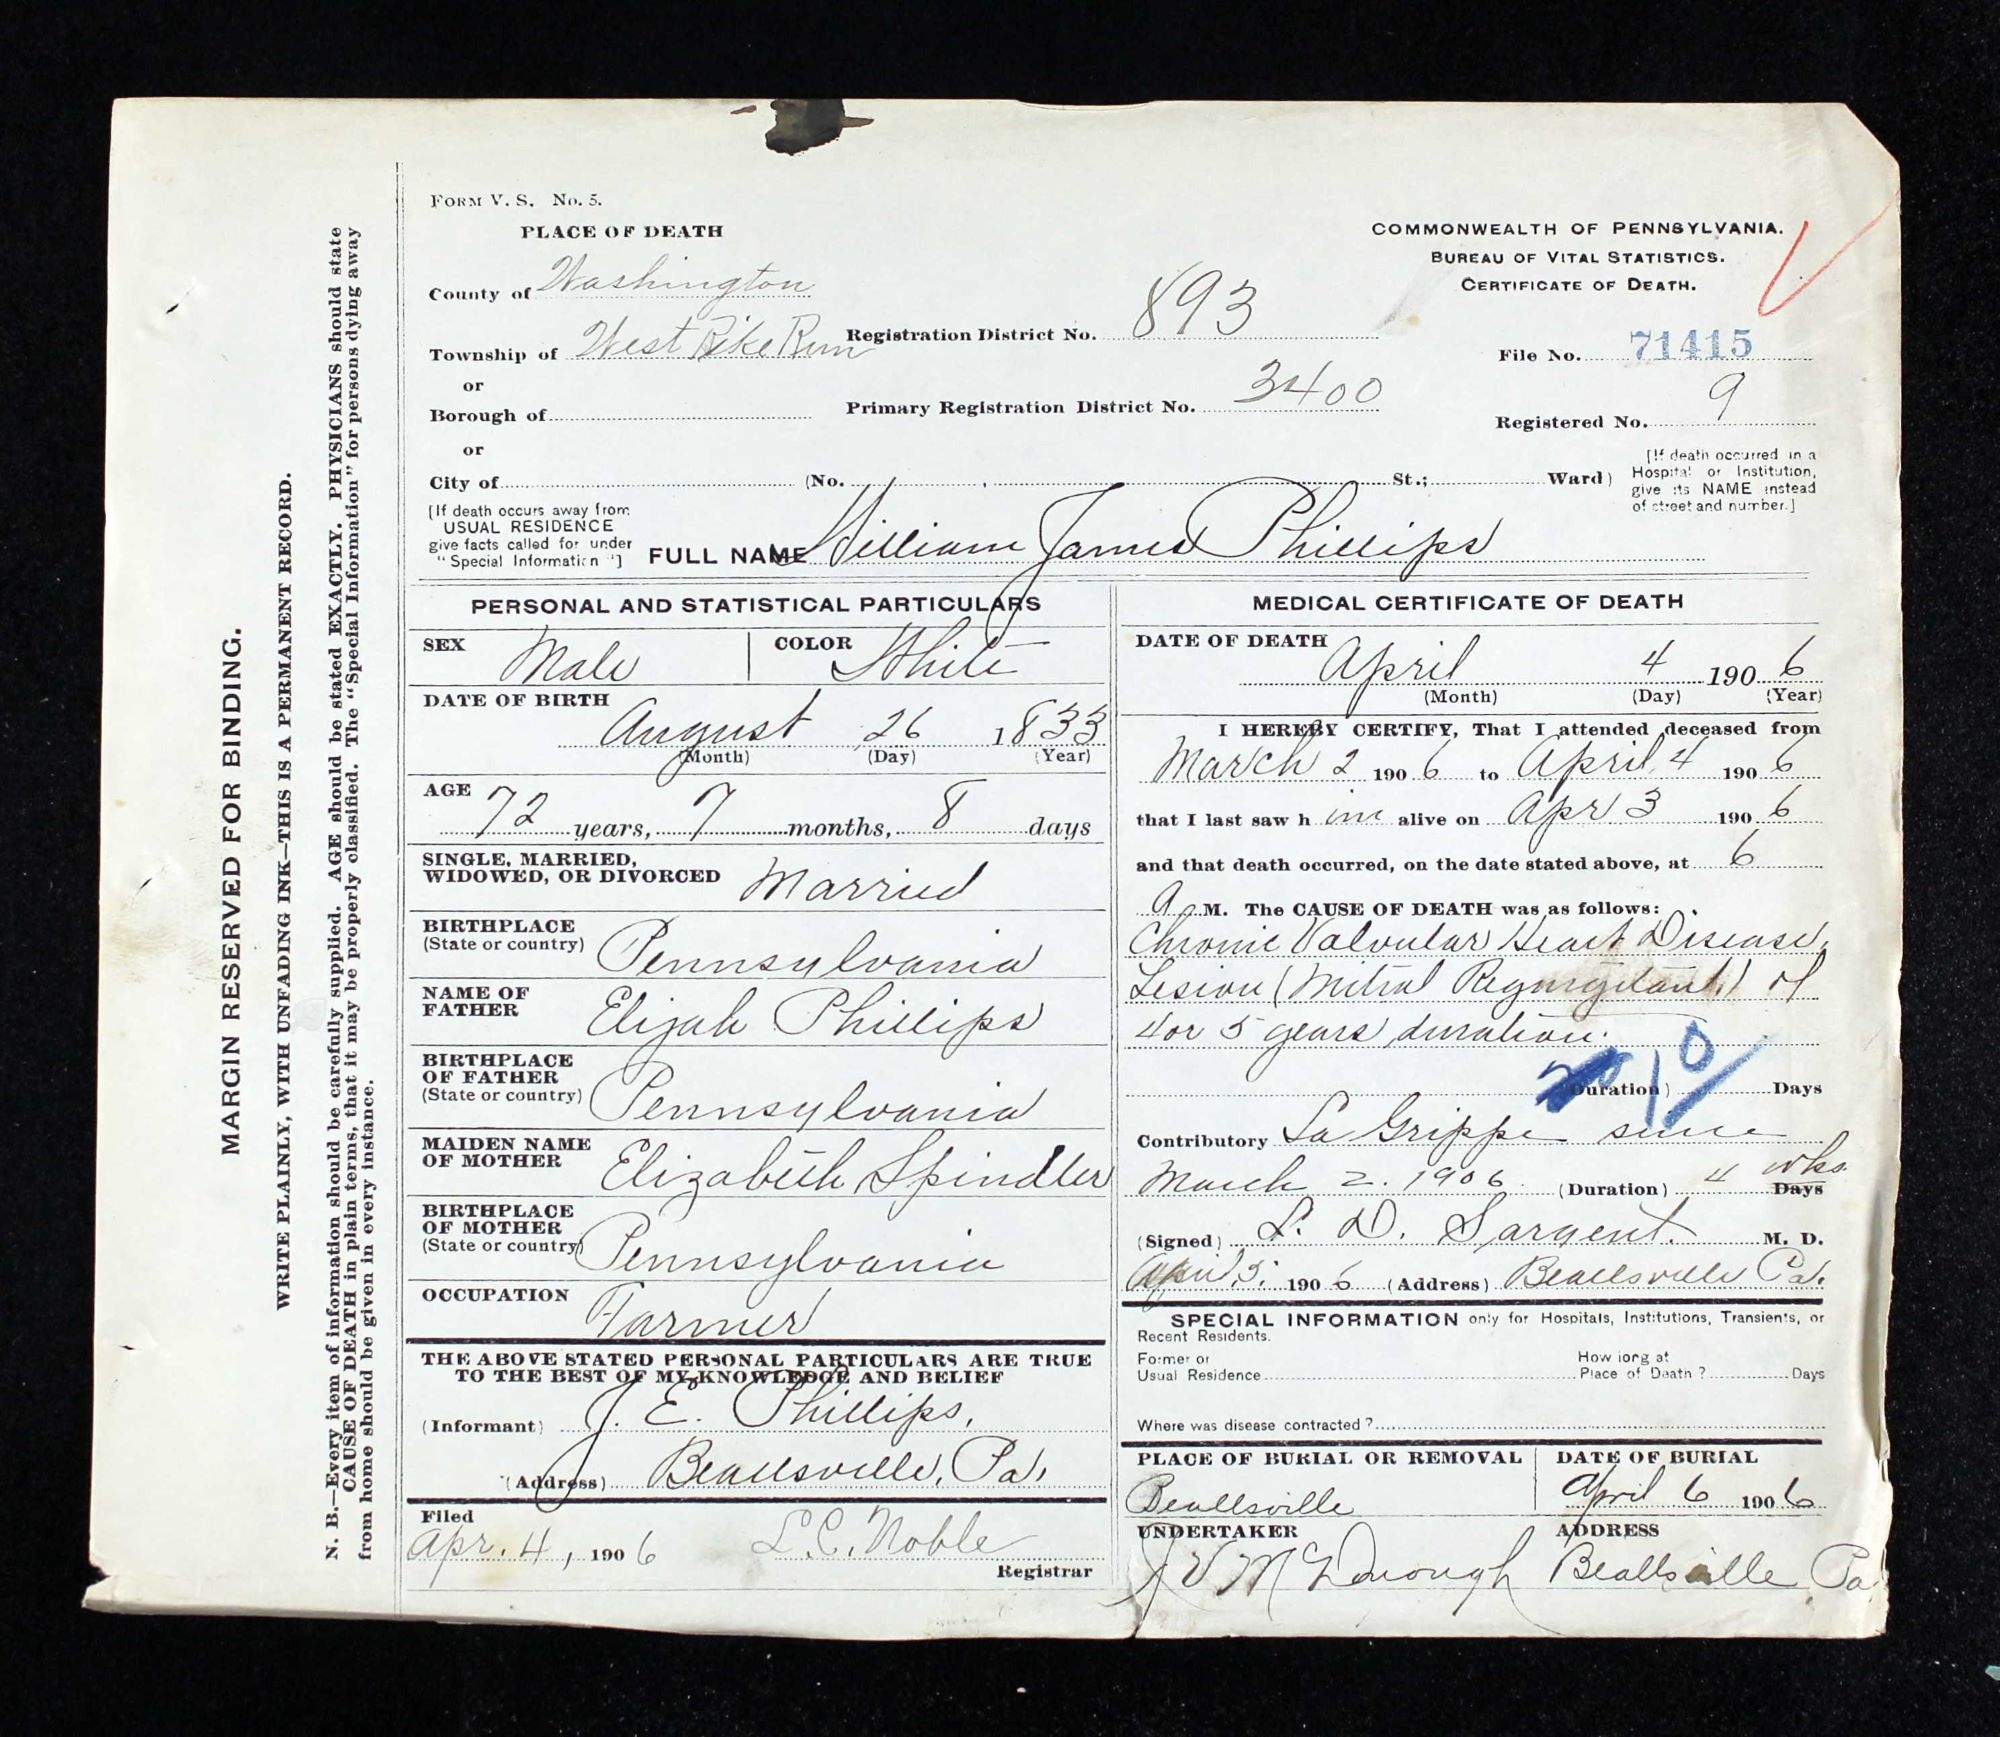 FORM V. S. No. 5.
PLACE OF DEATH
COMMONWEALTH OF PENNSYLVANIA.
BUREAU OF VITAL STATISTICS.
CERTIFICATE OF DEATH.
County of Washington
Township of West Pike Run
Registration District No. 893
File No. 71415
or
Borough of
Primary Registration District No. 3400
Registered No. 9
or
City of (No. St.; Ward)
[If death occurred in a
Hospital or Institution,
give its NAME instead
of street and number.]
[If death occurs away from
USUAL RESIDENCE
give facts called for under
"Special Information"]
FULL NAME William James Phillips
PERSONAL AND STATISTICAL PARTICULARS
SEX Male
COLOR White
DATE OF BIRTH
August 26 1833
(Month) (Day) (Year)
AGE
72 years, 7 months, 8 days
SINGLE, MARRIED,
WIDOWED, OR DIVORCED Married
BIRTHPLACE
(State or country) Pennsylvania
NAME OF
FATHER Elijah Phillips
BIRTHPLACE
OF FATHER
(State or country) Pennsylvania
MAIDEN NAME
OF MOTHER Elizabeth Spindler
BIRTHPLACE
OF MOTHER
(State or country) Pennsylvania
OCCUPATION
Farmer
THE ABOVE STATED PERSONAL PARTICULARS ARE TRUE
TO THE BEST OF MY KNOWLEDGE AND BELIEF
(Informant) J. E. Phillips,
(Address) Beallsville, Pa.
Filed
Apr. 4, 1906 L. C. Noble
Registrar
MEDICAL CERTIFICATE OF DEATH
DATE OF DEATH
April 4 1906
(Month) (Day) (Year)
I HEREBY CERTIFY, That I attended deceased from
March 2 1906 to April 4 1906
that I last saw him alive on Apr 3 1906
and that death occurred, on the date stated above, at 6
A M. The CAUSE OF DEATH was as follows:
Chronic Valvular Heart Disease,
Lesion (Mitral Regurgitant) of
4 or 5 years duration.
(Duration) 10 Days
Contributory La Grippe since
March 2. 1906 (Duration) 4 wks Days
(Signed) L. D. Sargent. M. D.
April 5. 1906 (Address) Beallsville Pa.
SPECIAL INFORMATION only for Hospitals, Institutions, Transients, or
Recent Residents.
Former or
Usual Residence
How long at
Place of Death? Days
Where was disease contracted?
PLACE OF BURIAL OR REMOVAL
Beallsville
DATE OF BURIAL
April 6 1906
UNDERTAKER
J V McDonough
ADDRESS
Beallsville Pa.
MARGIN RESERVED FOR BINDING.
WRITE PLAINLY, WITH UNFADING INK—THIS IS A PERMANENT RECORD.
N. B.—Every item of information should be carefully supplied. AGE should be stated EXACTLY. PHYSICIANS should state
CAUSE OF DEATH in plain terms, that it may be properly classified. The "Special Information" for persons dying away
from home should be given in every instance.